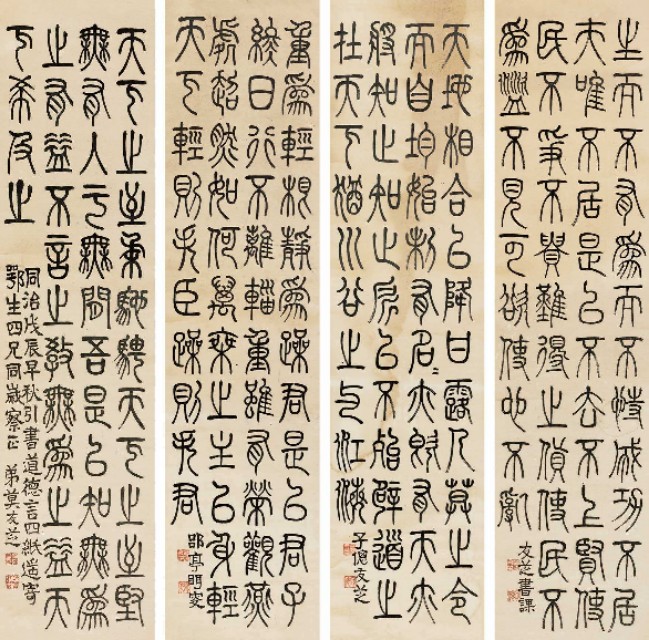 之而不有為而不恃成功不居
夫唯不居是以不去不上賢使
民不爭不貴難得之貨使民不
為盜不見可欲使心不亂
友芝書課
天地相合以降甘露人莫之令
而自均始制有名〻亦既有天亦
將知止知止所以不殆譬道之
在天下猶川谷之與江海
子偲友芝
重為輕根靜為躁君是以君子
終日行不離輜重雖有榮觀燕
處超然如何萬乘之主以身輕
天下輕則失臣躁則失君
郘亭眲叟
天下之至柔馳騁天下之至堅
無有入于無間吾是以知無為
之有益不言之教無為之益天
下希及之
同治戊辰早秋引書道德言四紙遙寄
鄂生四兄同歲察正 弟莫友芝